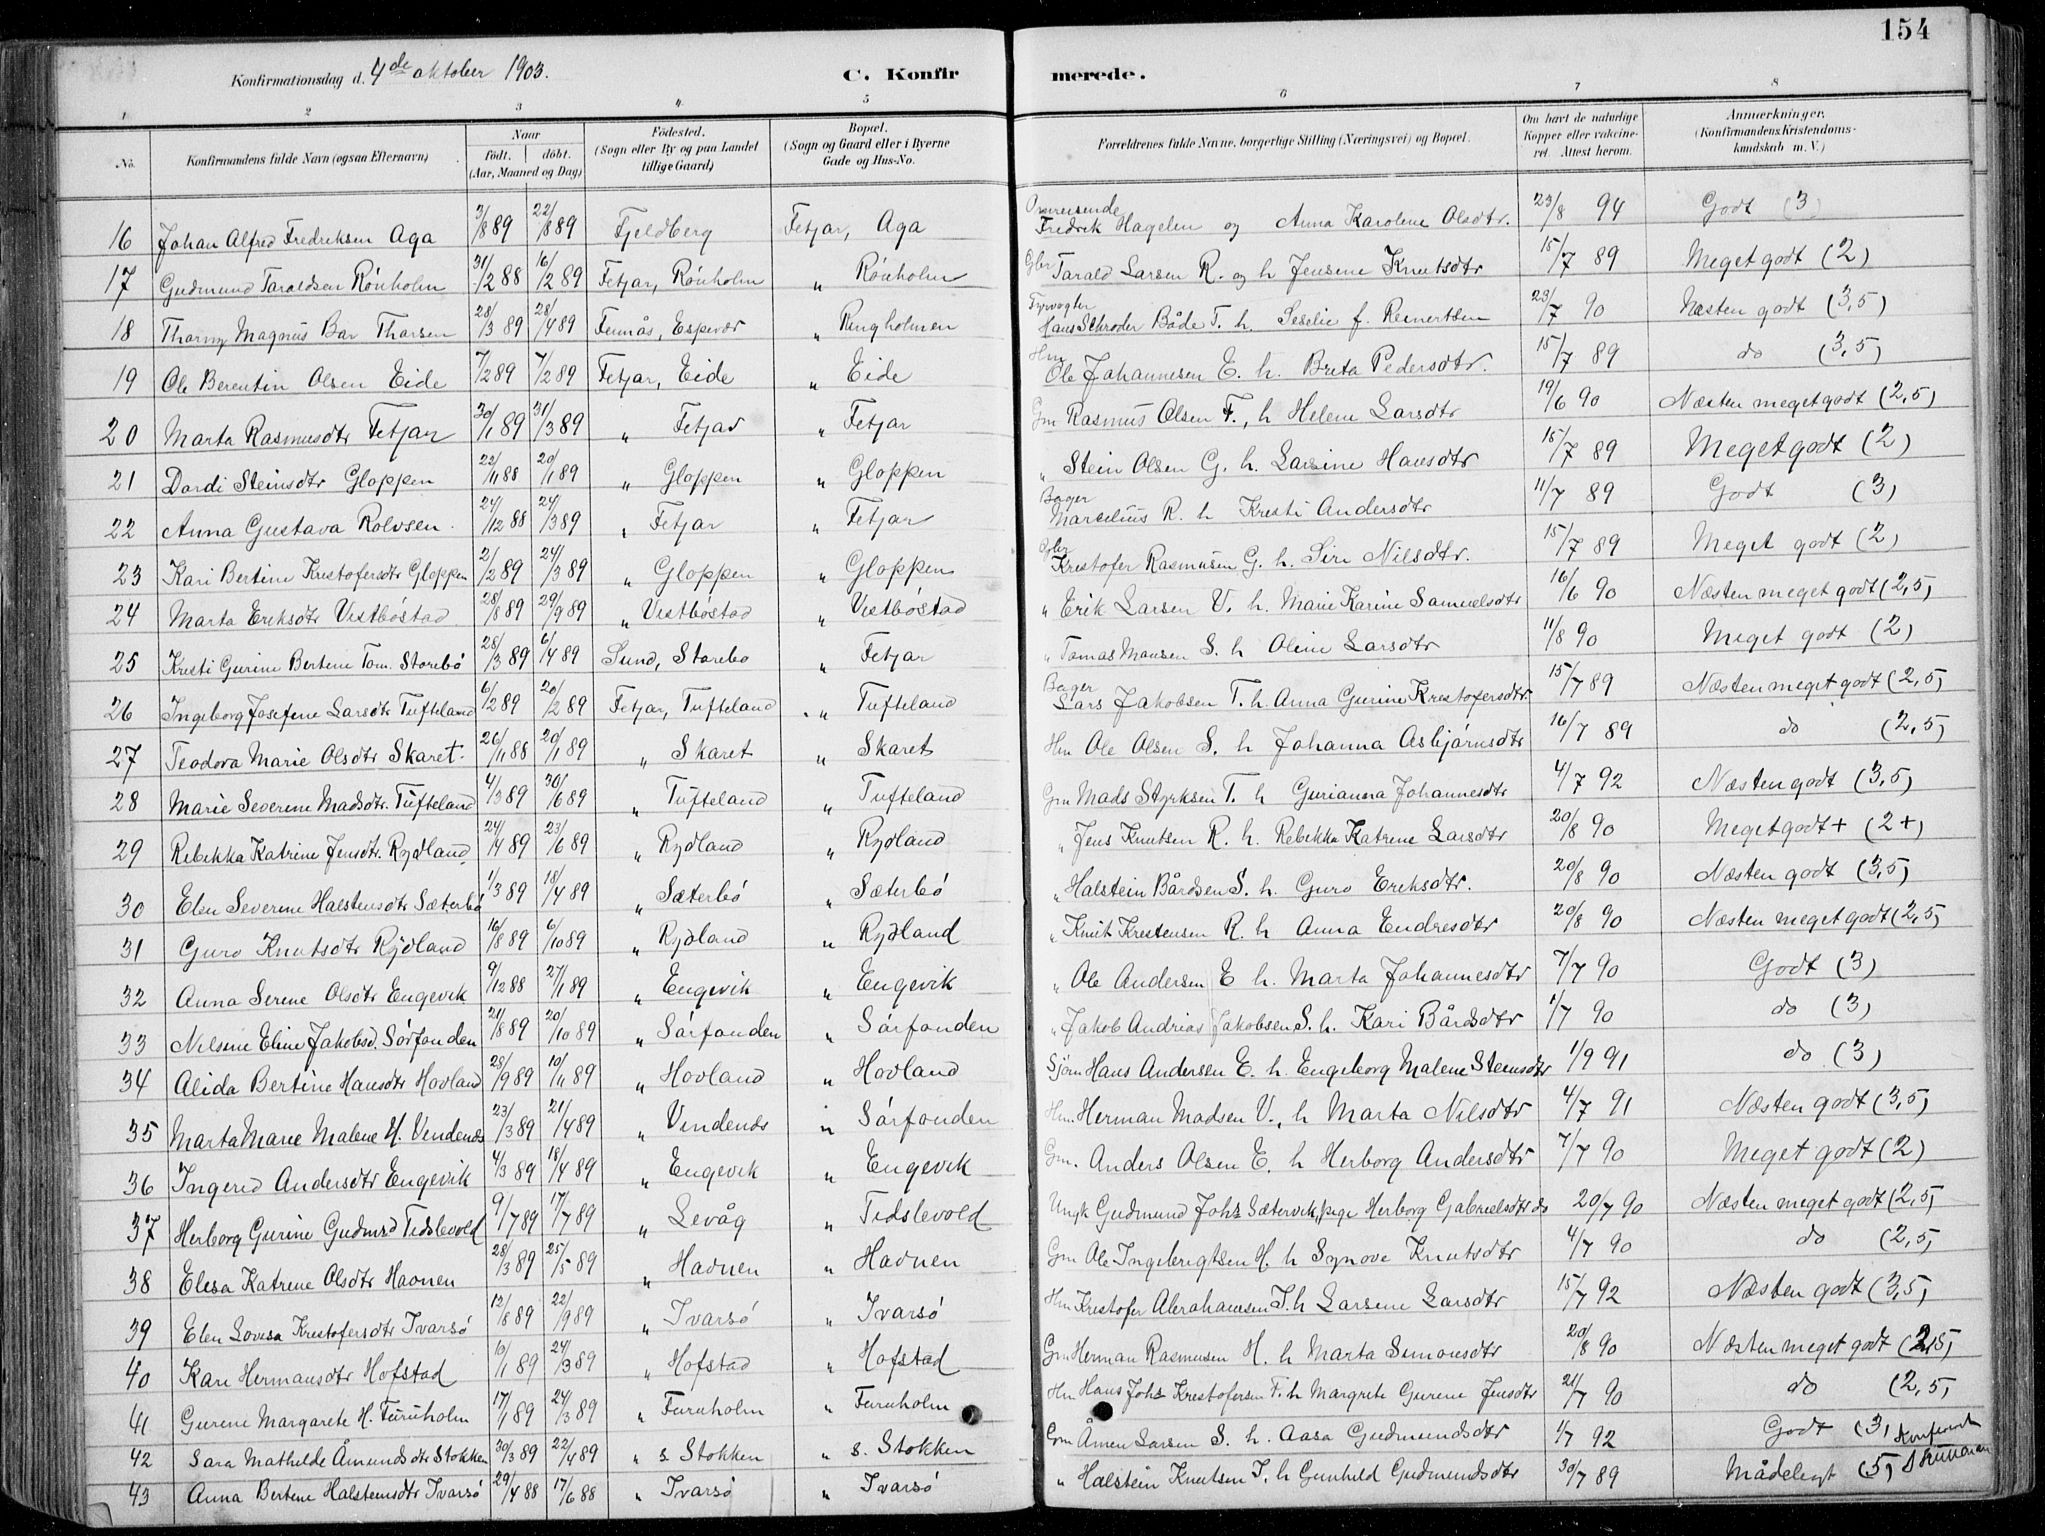 154
Konfirmationsdag d. 4de oktober 1903. C. Konfir merede.
1 2 3 4 5 6 7 8
No. Konfirmandens fulde Navn (ogsaa Efternavn) Naar födt. döbt. (Aar, Maaned og Dag) Födested. (Sogn eller By og paa Landet tillige Gaard) Bopæl. (Sogn og Gaard eller i Byerne Gade og Hus-No. Forældrenes fulde Navne, borgerlige Stilling (Næringsvei) og Bopæl. Om havt de naturlige Kopper eller vakcineret. Attest herom. Anmærkninger. (Konfirmandens Kristendomskundskab m. V.)
16 Johan Alfred Fredriksen Aga 3/8 89 22/8 89 Fjeldberg Fetjar, Aga Omreisende Fredrik Hagelen og Anna Karolene Olsdtr. 23/8 94 Godt (3)
17 Gudmund Taraldsen Rönholm 31/12 88 16/2 89 Fetjar, Rönholm " Rönholm Gbr Tarald Larsen R. og h Jensene Knutsdtr 15/7 89 Meget godt (2)
18 Thorny Magnus Bar Thorsen 28/3 89 28/4 89 Finnås, Espevær " Ringholmen Fyrvogter Hans Schrøder Både T. h. Seselie f. Reinertsen 23/7 90 Næsten godt (3,5)
19 Ole Berentin Olsen Eide 7/2 89 7/2 89 Fetjar, Eide " Eide Hm Ole Johannesen E. h. Breta Pedersdtr. 15/7 89 do (3,5)
20 Marta Rasmusdtr Fetjar 30/1 89 31/3 89 " Fetjar " Fetjar Gm Rasmus Olsen F., h Helene Larsdtr 19/6 90 Næsten meget godt (2,5)
21 Dordi Steinsdtr Gloppen 22/11 88 20/1 89 " Gloppen " Gloppen " Stein Olsen G. h. Larsine Hansdtr 15/7 89 Meget godt (2)
22 Anna Gustava Rolvsen. 24/12 88 24/3 89 " Fetjar " Fetjar Bager Marselius R. h Kresti Andersdtr 11/7 89 Godt (3)
23 Kari Bertine Krestofersdtr Gloppen 2/2 89 24/3 89 " Gloppen " Gloppen Gbr Krestofer Rasmusen G. h. Siri Nilsdtr. 15/7 89 Meget godt (2)
24 Marta Eriksdtr Vestböstad 28/8 89 29/9 89 " Vestböstad " Vestböstad " Erik Larsen V. h. Marie Karine Samuelsdtr 16/6 90 Næsten meget godt (2,5)
25 Kresti Gurine Bertene Tom. Storebö 28/3 89 6/4 89 Sund, Storebo " Fetjar " Tomas Monsen S. h Oline Larsdtr 11/8 90 Meget godt (2)
26 Ingeborg Josefene Larsdtr Tufteland 6/12 89 20/2 89 Fetjar, Tufteland " Tufteland Bager Lars Jakobsen T. h. Anna Gurine Krestofersdtr 15/7 89 Næsten meget godt (2,5)
27 Teodora Marie Olsdtr Skaret. 26/11 88 20/1 89 " Skaret " Skaret Hm Ole Olsen S. h Johanna Asbjörnsdtr 16/7 89 do (2,5)
28 Marie Severene Madsdtr. Tufteland 4/3 89 30/6 89 " Tufteland " Tufteland Gm Mads Styrksen T. h Gurianna Johannesdtr 4/7 92 Næsten godt (3,5)
29 Rebekka Katrine Jensdtr. Rydland 24/4 89 23/6 89 " Rydland " Rydland " Jens Knutsen R. h. Rebekka Katrene Larsdtr 20/8 90 Meget godt + (2+)
30 Elen Severene Halstensdtr Sæterbö 1/3 89 18/4 89 " Sæterbö " Sæterbö " Halstein Bårdsen S. h. Guro Ereksdtr. 20/8 90 Næsten godt (3,5)
31 Guro Knutsdtr Rydland 16/8 89 6/10 89 " Rydland " Rydland " Knut Krestensen R. h Anna Endresdtr 20/8 90 Næsten meget godt (2,5)
32 Anna Serene Olsdtr Engevik 9/12 88 27/1 89 " Engevik " Engevik " Ole Andersen E h. Marta Johannesdtr 7/7 90 Godt (3)
33 Nilsine Eline Jakobsd. Sörfonden 21/8 89 20/10 89 " Sörfonden " Sörfonden " Jakob Andrias Jakobsen S. h. Kari Bårdsdtr 1/7 90 do (3)
34 Alida Bertine Hansdtr Hovland 28/9 89 10/11 89 " Hovland " Hovland Sjöm Hans Andersen E. h. Engeborg Malene Steinsdtr 1/9 91 do (3)
35 Marta Marie Malene H. Vendenes 23/3 89 21/4 89 " Vendenes " Sörfonden Hm. Herman Madsen V., h Marta Nilsdtr 4/7 91 Næsten godt (3,5)
36 Ingerid Andersdtr Engevik 4/3 89 18/4 89 " Engevik " Engevik Gm. Anders Olsen E. h Herborg Andersdtr 7/7 90 Meget godt (2)
37 Herborg Gurine Gudmsd Tedslevold 9/7 89 17/7 89 " Levåg " Tedslevold Ungk Gudmund Johs Sætervik, pige Herborg Gabrielsdtr do 20/7 90 Næsten meget godt (2,5)
38 Elesa Katrene Olsdtr Havnen 28/3 89 25/5 89 " Havnen " Havnen Gm Ole Ingebrigtsen H. h Synove Knutsdtr 4/7 90 do (2,5)
39 Elen Lovesa Krestofersdtr Ivarsö 12/8 89 22/9 89 " Ivarsö " Ivarsö Hm Krestofer Abrahamsen I. h Larsene Larsdtr 15/7 92 Næsten godt (3,5)
40 Kari Hermansdtr Hofstad 10/1 89 24/3 89 " Hofstad " Hofstad Gm Herman Rasmusen H. h Marta Simonsdtr 20/8 90 Næsten meget godt (2,5)
41 Gurene Margarete H. Furuholm 17/1 89 24/3 89 " Furuholm " Furuholm Hm Hans Johs Krestofersen F. h Margrete Gurene Jensdtr 21/7 90 do (2,5)
42 Sara Mathilde Åmundsdtr Stokken 30/3 89 22/4 89 " s. Stokken " s. Stokken Gm Åmen Larsen S. h. Aasa Gudmundsdtr 1/7 92 Godt (3)
43 Anna Bertene Halsteinsdtr Ivarsö 29/4 88 17/6 88 " Ivarsö " Ivarsö " Halstein Knutsen I. h Gunhild Gudmundsdtr 30/7 89 Mådelegt (5)